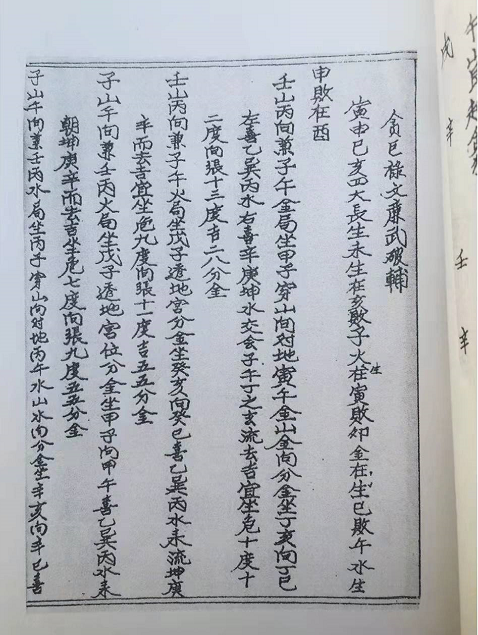 貪巨祿文廉武破輔
寅申巳亥四大長生木生在亥敗子火在生寅敗卯金在生巳敗午水生
申敗在酉
壬山丙向兼子午金局坐甲子穿山向对地寅午金山金向分金坐丁亥向丁巳
左喜乙巽丙水右喜辛庚坤水交会子午丁之玄流去吉宜坐危十度十
二度向張十三度吉二八分金
壬山丙向兼子午火局坐戊子透地宮分金坐癸亥向癸巳喜乙巽丙水来流坤庚
辛而去吉宜坐危九度向張十一度吉五五分金
子山午向兼壬丙火局坐戊子透地宮位分金坐甲子向甲午喜乙巽丙水来
朝坤庚辛而去吉坐危七度向張九度五五分金
子山午向兼壬丙水局坐丙子穿山向对地丙午水山水向分金坐辛亥向辛巳喜
戊
辛
壬
辛